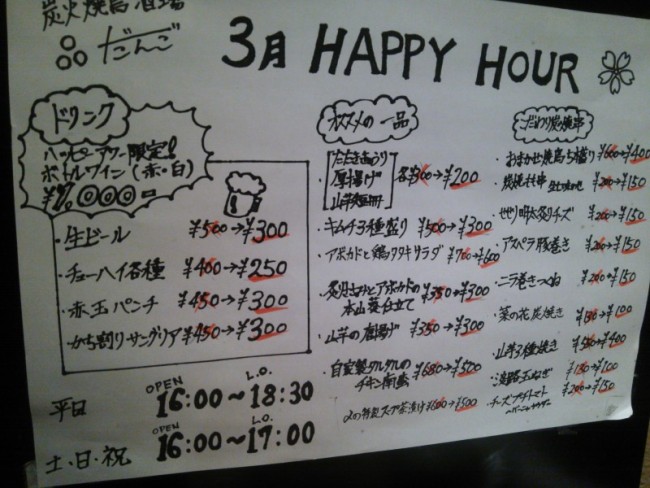 炭火焼鳥酒場
だんご
3月 HAPPY HOUR
ドリンク
ハッピーアワー限定!
ボトルワイン(赤・白)
・生ビール ¥500→¥300
・チューハイ各種 ¥400→¥250
・赤玉パンチ ¥450→¥300
・かち割りサングリア ¥450→¥300
平日 OPEN 16:00~ L.O. 18:30
土・日・祝 OPEN 16:00~ L.O. 17:00
オススメの一品
たたききゅうり
厚揚げ
山芋短冊
各¥300→¥200
・キムチ3種盛り ¥500→¥300
・アボカドと鶏タタキサラダ ¥700→¥600
・炙りささみとアボカドの
本山葵仕立て ¥350→¥300
・山芋の唐揚げ ¥350→¥300
・自家製タルタルの
チキン南蛮 ¥680→¥500
¥600→¥500
こだわり炭焼串
・おまかせ焼鳥5種盛り ¥600→¥400
→¥150
¥200→¥150
・アスパラ豚巻き ¥200→¥150
・ニラ巻きつくね ¥200→¥150
・菜の花炭焼き ¥150→¥100
・山芋3種焼き ¥500→¥400
・淡路玉ねぎ ¥150→¥100
・チーズプチトマト ¥200→¥150